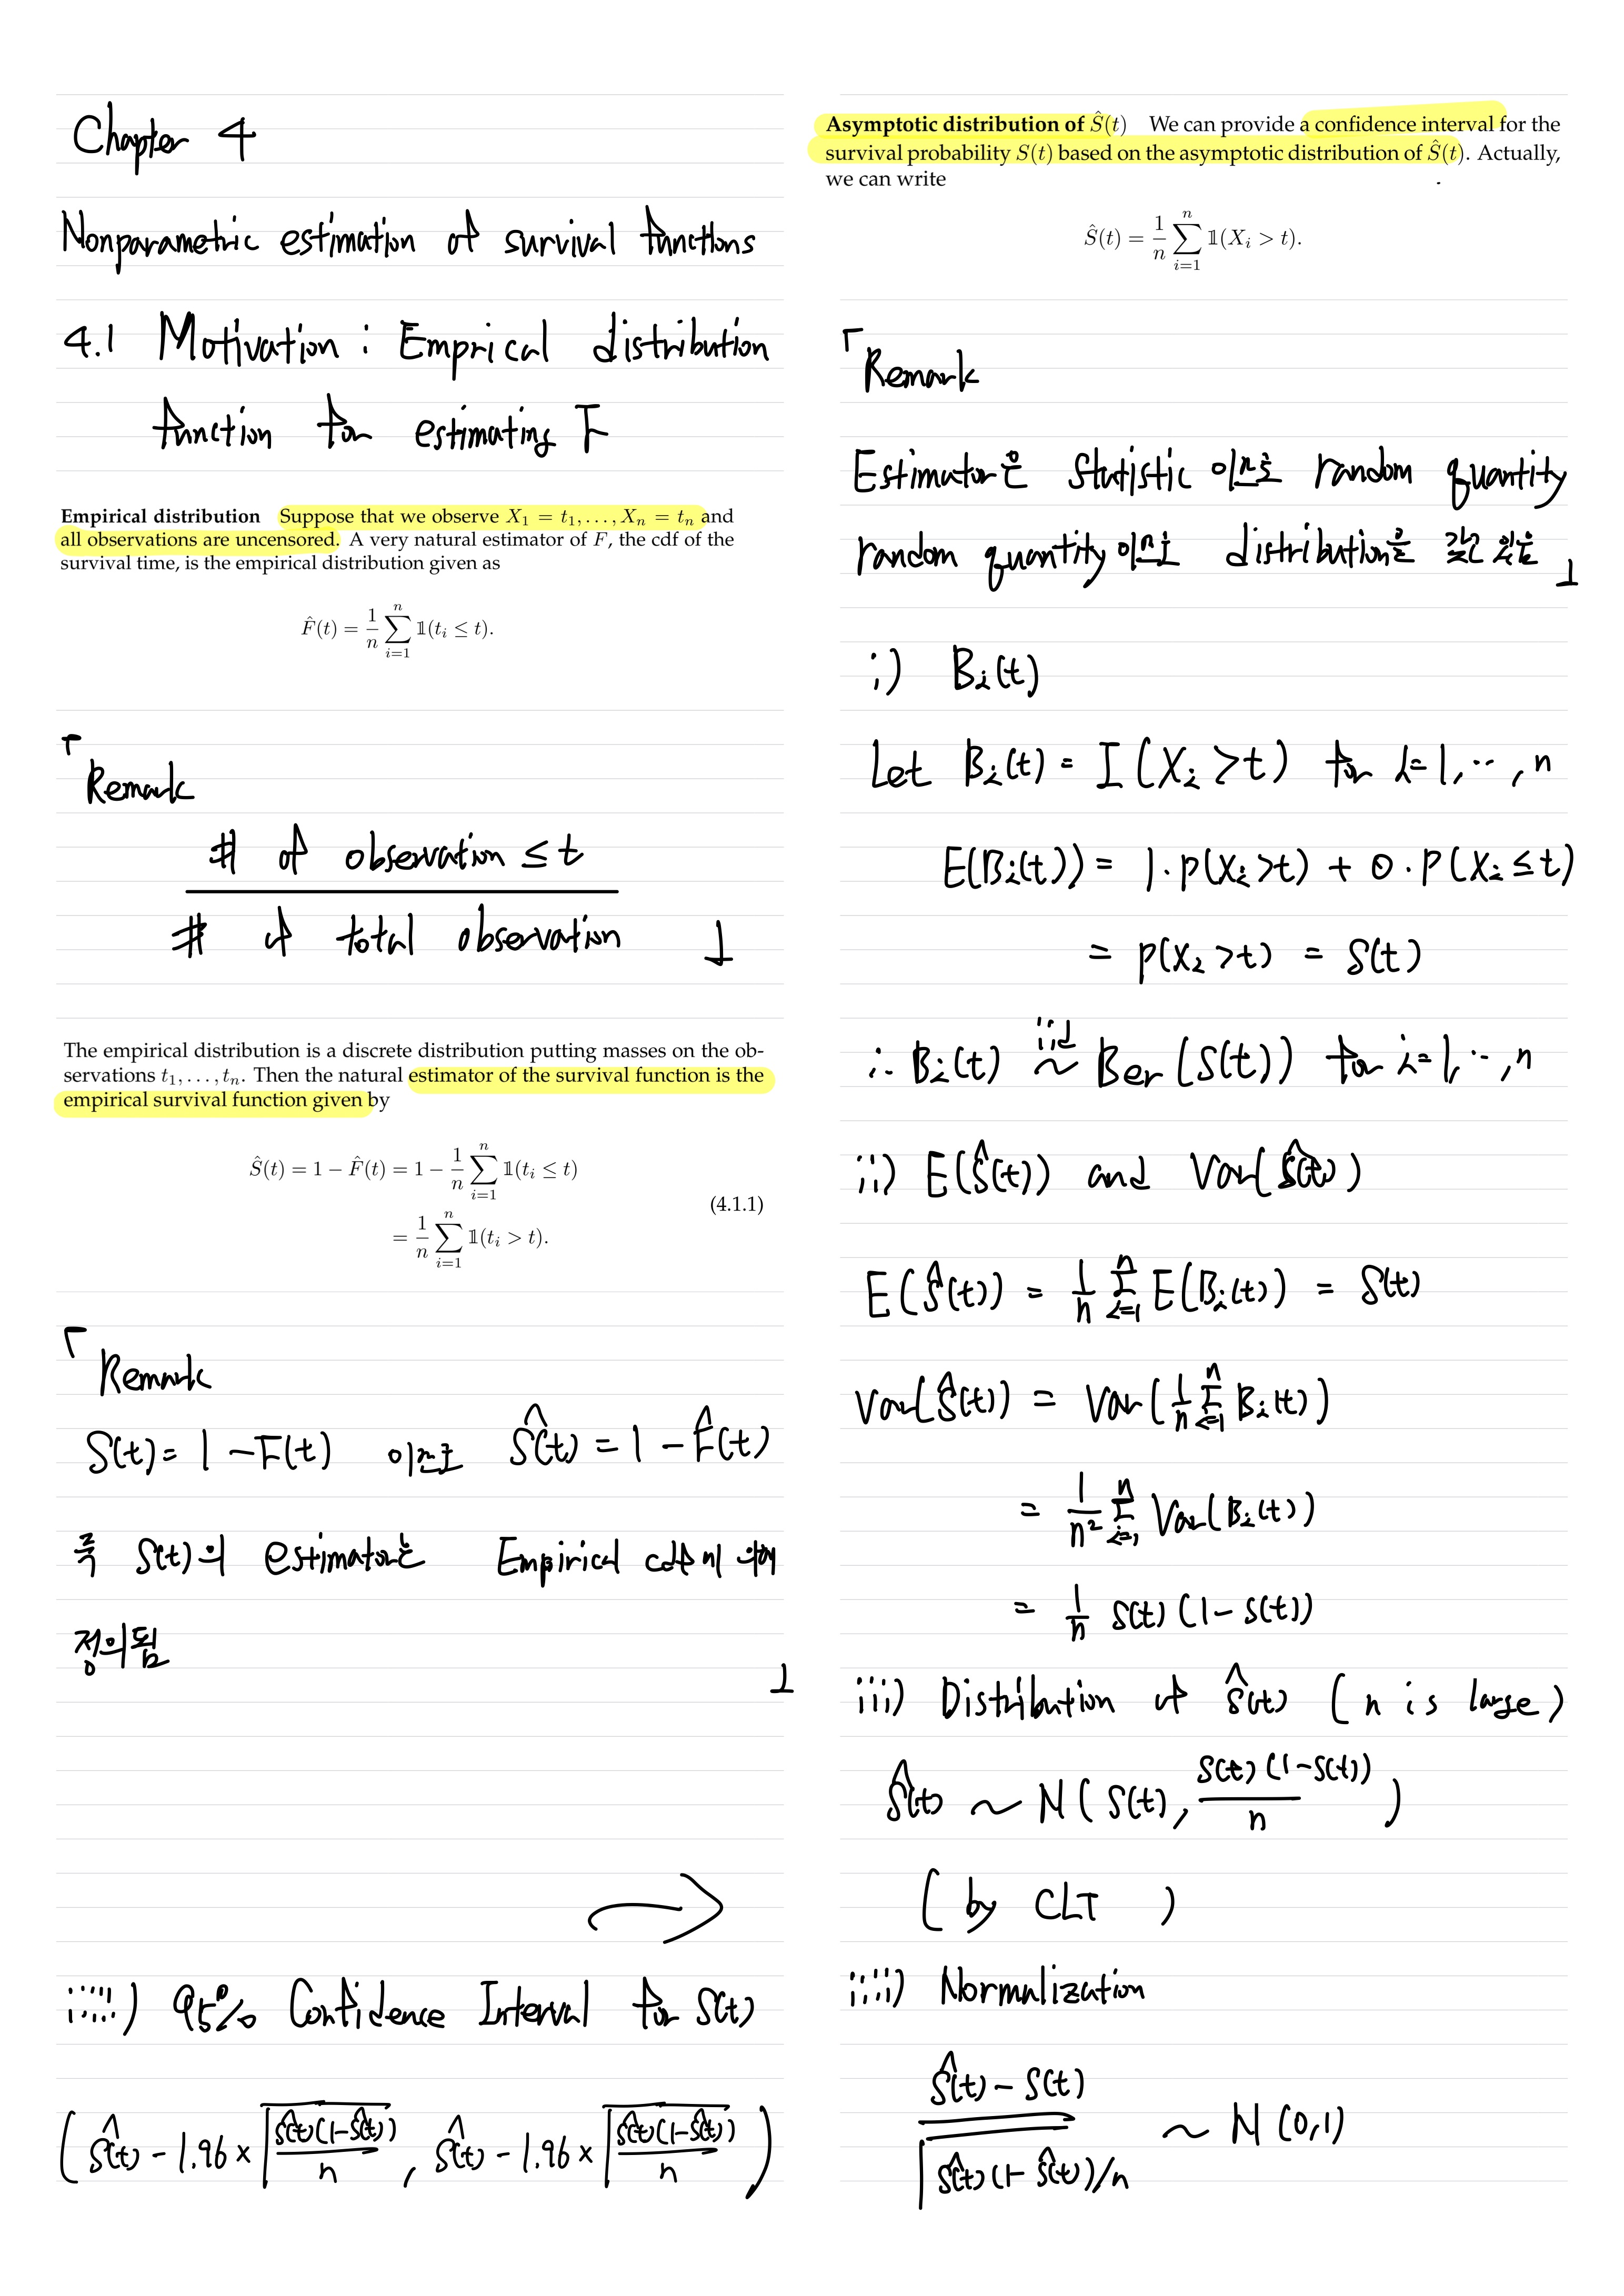 Chapter 4
Nonparametric estimation of survival functions
4.1 Motivation : Emprical distribution
function for estimating F
Empirical distribution Suppose that we observe X₁ = t₁, . . . , Xₙ = tₙ and
all observations are uncensored. A very natural estimator of F, the cdf of the
survival time, is the empirical distribution given as
F̂(t) = 1/n ∑ᵢ₌₁ⁿ 𝟙(tᵢ ≤ t).
「Remark
# of observation ≤ t
# of total observation 」
The empirical distribution is a discrete distribution putting masses on the ob-
servations t₁, . . . , tₙ. Then the natural estimator of the survival function is the
empirical survival function given by
Ŝ(t) = 1 − F̂(t) = 1 − 1/n ∑ᵢ₌₁ⁿ 𝟙(tᵢ ≤ t)
= 1/n ∑ᵢ₌₁ⁿ 𝟙(tᵢ > t).
(4.1.1)
「Remark
S(t) = 1 − F(t) 이므로 Ŝ(t) = 1 − F̂(t)
즉 S(t)의 estimator는 Empirical cdf에 의해
정의됨 」
Asymptotic distribution of Ŝ(t) We can provide a confidence interval for the
survival probability S(t) based on the asymptotic distribution of Ŝ(t). Actually,
we can write
Ŝ(t) = 1/n ∑ᵢ₌₁ⁿ 𝟙(Xᵢ > t).
「Remark
Estimator은 Statistic 이므로 random quantity
random quantity 이므로 distribution을 갖고 있음 」
i) Bᵢ(t)
Let Bᵢ(t) = I(Xᵢ > t) for i=1, ⋯, n
E(Bᵢ(t)) = 1 · P(Xᵢ > t) + 0 · P(Xᵢ ≤ t)
= P(Xᵢ > t) = S(t)
∴ Bᵢ(t) iid ~ Ber(S(t)) for i=1, ⋯, n
ii) E(Ŝ(t)) and Var(Ŝ(t))
E(Ŝ(t)) = 1/n ∑ᵢ₌₁ⁿ E(Bᵢ(t)) = S(t)
Var(Ŝ(t)) = Var(1/n ∑ᵢ₌₁ⁿ Bᵢ(t))
= 1/n² ∑ᵢ₌₁ⁿ Var(Bᵢ(t))
= 1/n S(t)(1 − S(t))
iii) Distribution of Ŝ(t) (n is large)
Ŝ(t) ~ N(S(t), S(t)(1−S(t))/n)
(by CLT)
iiii) Normalization
(Ŝ(t) − S(t)) / √(Ŝ(t)(1 − Ŝ(t))/n) ~ N(0,1)
iiiii) 95% Confidence Interval for S(t)
(Ŝ(t) − 1.96 × √(Ŝ(t)(1−Ŝ(t))/n), Ŝ(t) − 1.96 × √(Ŝ(t)(1−Ŝ(t))/n))